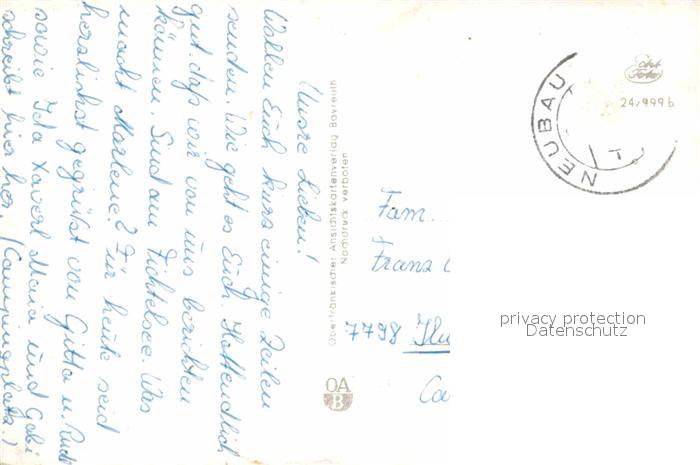 Unsre Lieben!
Wollen Euch kurz einige Zeilen
senden. Wie geht es Euch. Hoffendlich
gut. daß wir von uns berichten
können. Sind am Fichtelsee. Was
macht Marlene? Für heute seid
herzlichst gegrüßt von Gitta u. Rudi
sowie Ida Xaverl Maria und Gabi
schreibt hier her. (Campingplatz.)
Oberfränkischer Ansichtskartenverlag Bayreuth
Nachdruck verboten
OA
B
NEUBAU
T
Echt
Foto
24/999 b
Fam.
Franz
7798
privacy protection
Datenschutz